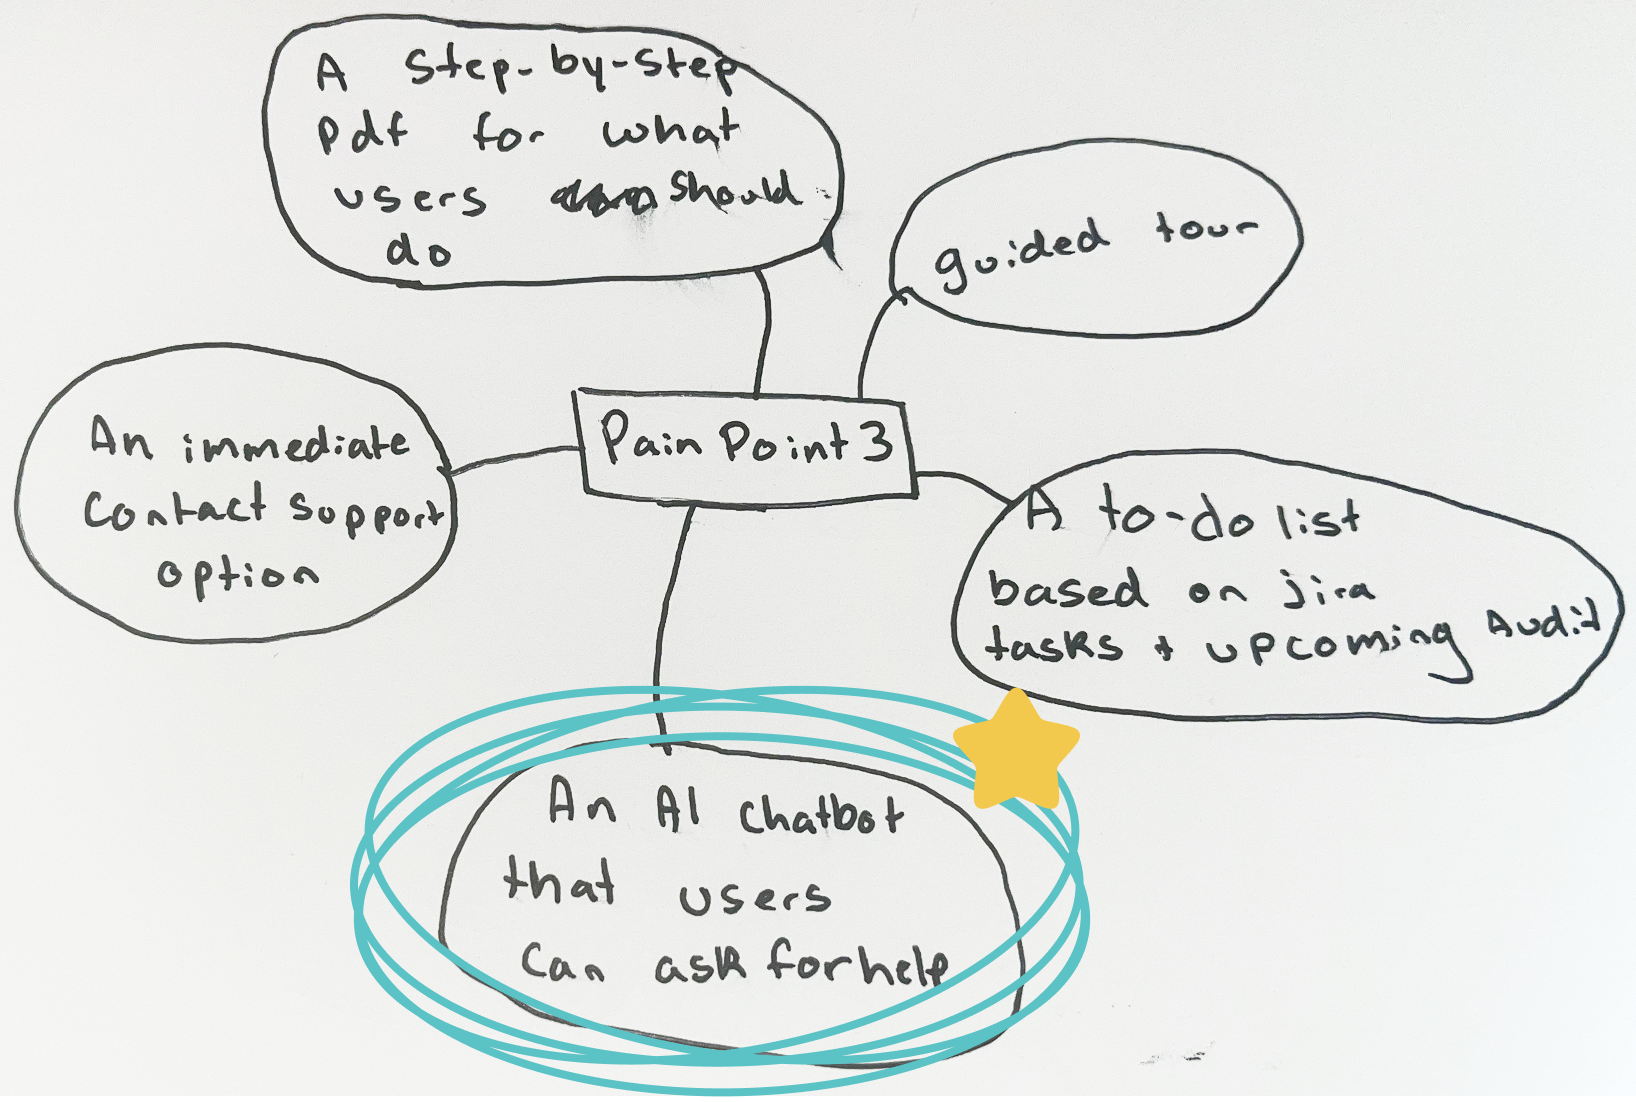 A Step-by-Step
Pdf for what
users should
do
guided tour
An immediate
Contact support
option
Pain Point 3
A to-do list
based on jira
tasks + upcoming Audit
An AI chatbot
that users
can ask for help